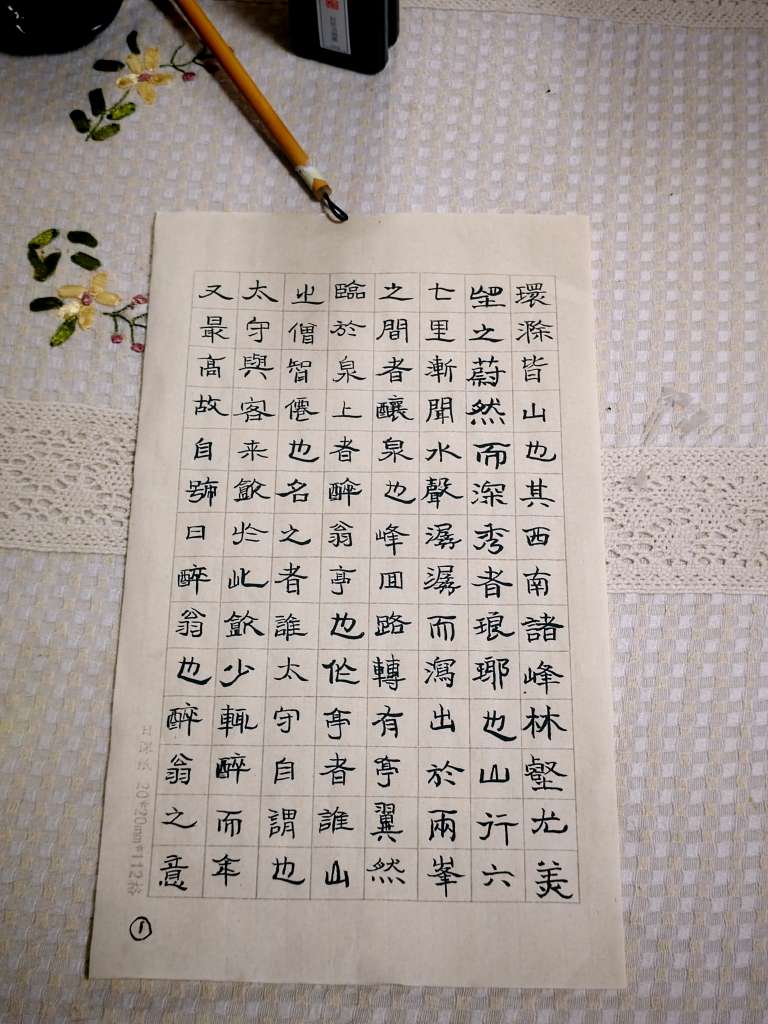 環滁皆山也其西南諸峰林壑尤美
望之蔚然而深秀者琅琊也山行六
七里漸聞水聲潺潺而瀉出於兩峯
之間者釀泉也峰回路轉有亭翼然
臨於泉上者醉翁亭也作亭者誰山
之僧智僊也名之者誰太守自謂也
太守與客来飲於此飲少輒醉而年
又最高故自號曰醉翁也醉翁之意
日課紙 20*20mm*112格
①